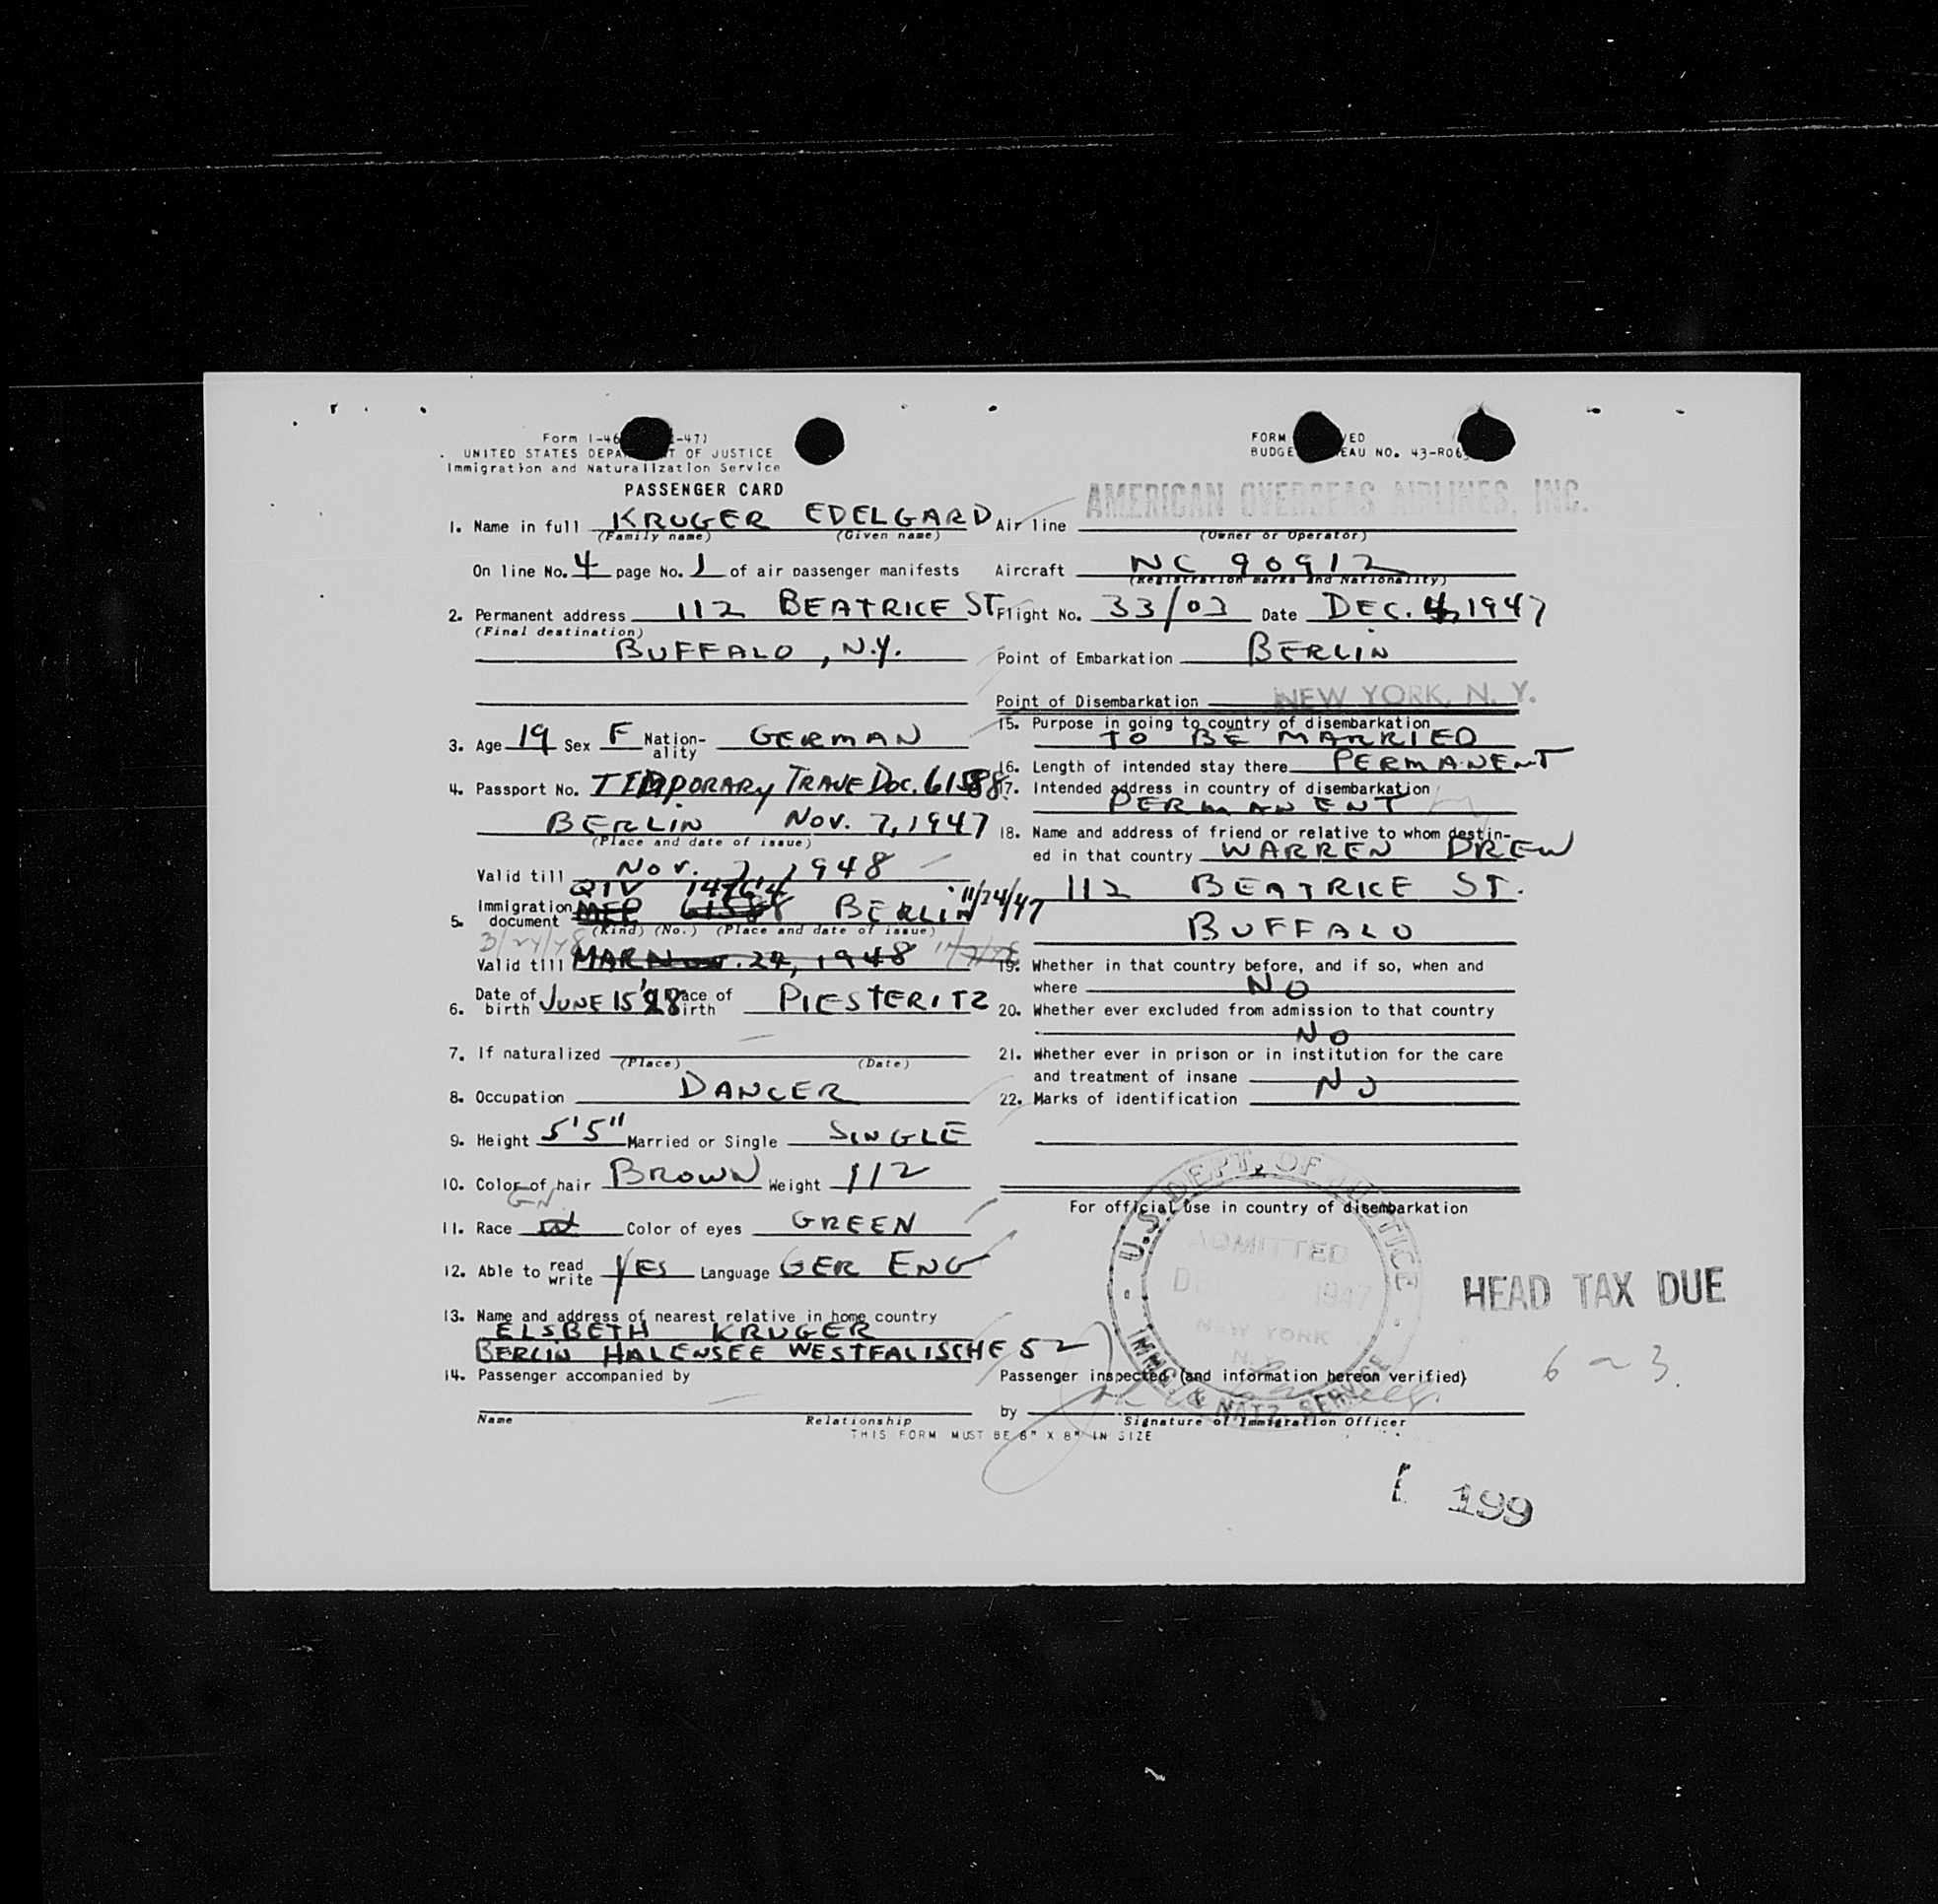 Form I-46 -47)
UNITED STATES DEPA T OF JUSTICE
Immigration and Naturalization Service
PASSENGER CARD
FORM VED
BUDGE EAU NO. 43-R06
AMERICAN OVERSEAS AIRLINES, INC.
1. Name in full KRUGER EDELGARD
(Family name) (Given name)
On line No. 4 page No. 1 of air passenger manifests
2. Permanent address 112 BEATRICE ST
(Final destination)
BUFFALO, N.Y.
3. Age 19 Sex F Nation-
ality GERMAN
4. Passport No. TEMPORARY TRAVE DOC. 61588
BERLIN NOV. 7, 1947
(Place and date of issue)
Valid till NOV. 7, 1948
QIV 14764
5. Immigration
document MFP 61588 BERLIN 11/24/47
(Kind) (No.) (Place and date of issue)
3/24/48
Valid till MAR NOV. 24, 1948
6. Date of
birth JUNE 15 '28 Place of
birth PIESTERITZ
7. If naturalized
(Place) (Date)
8. Occupation DANCER
9. Height 5'5" Married or Single SINGLE
10. Color of hair BROWN Weight 112
GN
11. Race Color of eyes GREEN
12. Able to read
write YES Language GER ENG
13. Name and address of nearest relative in home country
ELSBETH KRUGER
BERLIN HALENSEE WESTFALISCHE 52
14. Passenger accompanied by
Name Relationship
Air line
(Owner or Operator)
Aircraft NC 90912
(Registration marks and Nationality)
Flight No. 33/03 Date DEC. 4, 1947
Point of Embarkation BERLIN
Point of Disembarkation NEW YORK, N. Y.
15. Purpose in going to country of disembarkation
TO BE MARRIED
16. Length of intended stay there PERMANENT
17. Intended address in country of disembarkation
PERMANENT
18. Name and address of friend or relative to whom destin-
ed in that country WARREN DREW
112 BEATRICE ST.
BUFFALO
19. Whether in that country before, and if so, when and
where NO
20. Whether ever excluded from admission to that country
NO
21. Whether ever in prison or in institution for the care
and treatment of insane NO
22. Marks of identification
For official use in country of disembarkation
U.S. DEPT. OF JUSTICE
ADMITTED
1947
NEW YORK
N.Y.
IMMG. & NATZ. SERVICE
HEAD TAX DUE
Passenger inspected (and information hereon verified)
by
Signature of Immigration Officer
THIS FORM MUST BE 8" X 8" IN SIZE
199